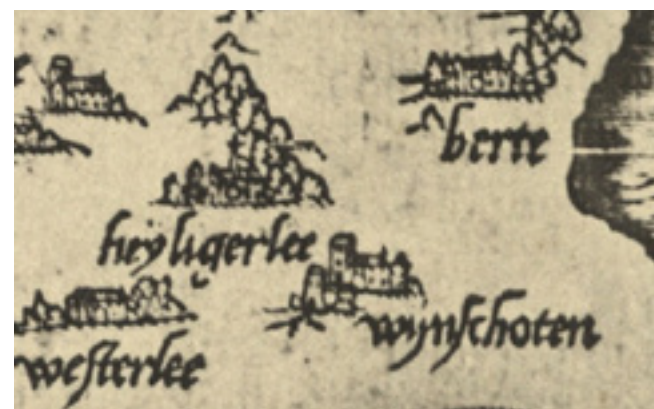 berte
heyligerlee
wynschoten
westerlee